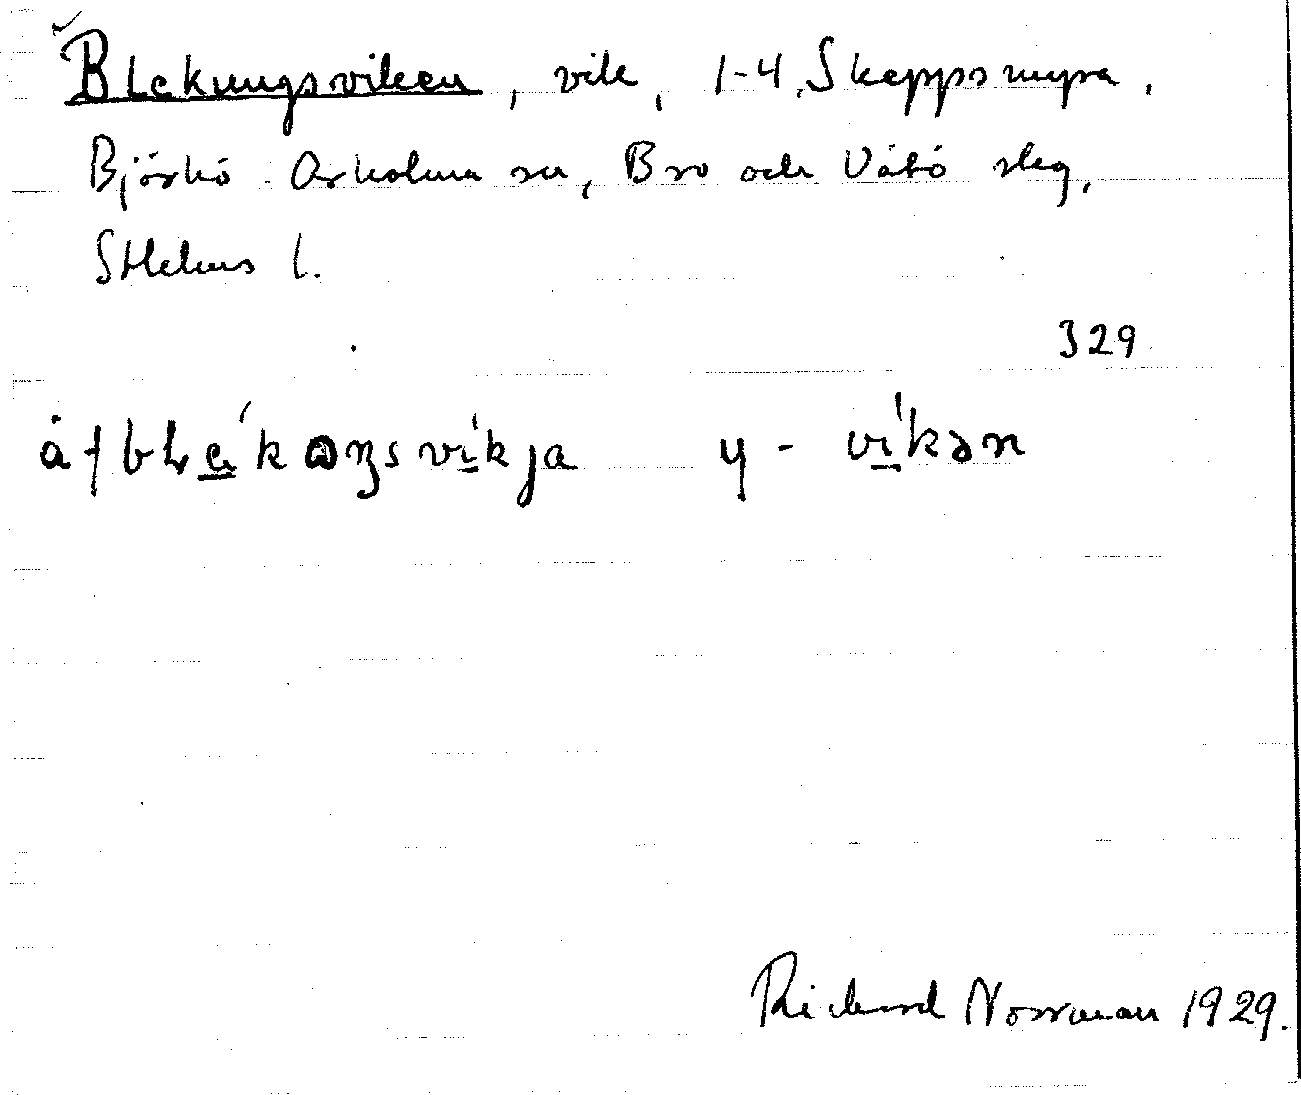 Blekungsviken, vik, 1-4 Skeppsmyra,
Björkö-Arholma sn, Bro och Vätö skg,
Sthlms l.
329
y -víkən
Richard Norrman 1929.